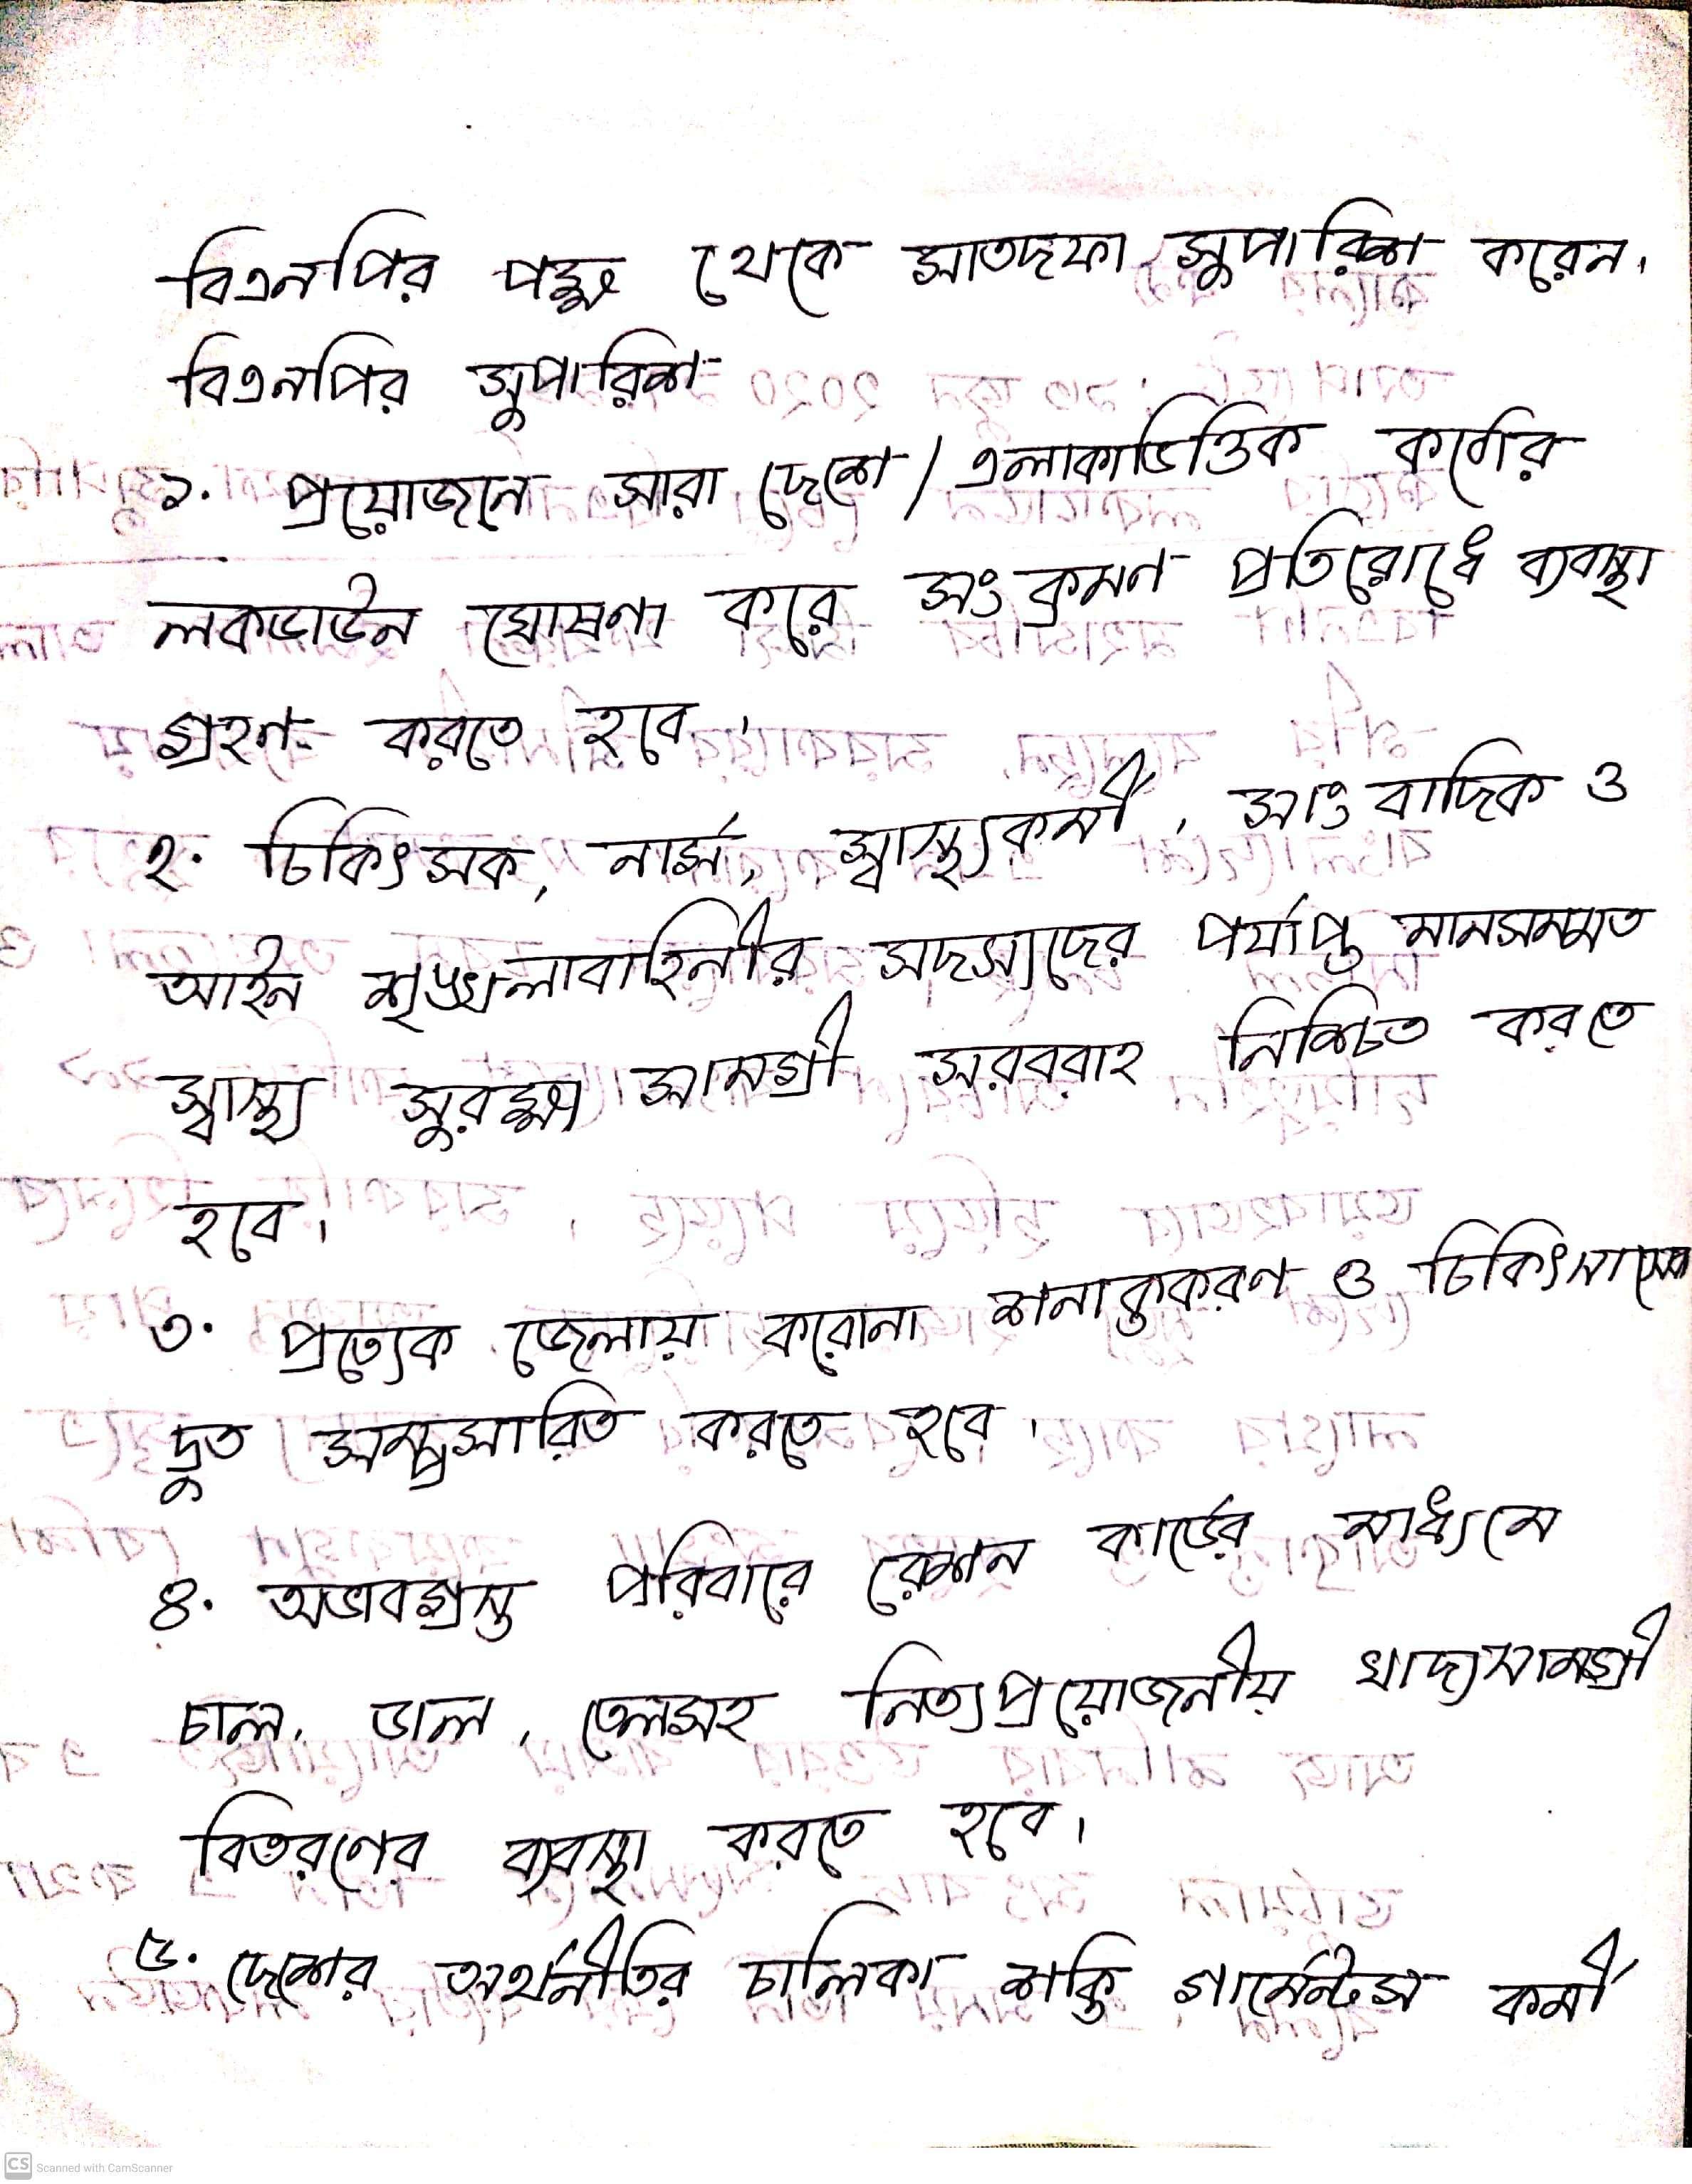 বিএনপির পক্ষ থেকে সাতদফা সুপারিশ করেন।
বিএনপির সুপারিশ-
১. প্রয়োজনে সারা দেশে / এলাকাভিত্তিক কঠোর
লকডাউন ঘোষণা করে সংক্রমণ প্রতিরোধে ব্যবস্থা
গ্রহণ করতে হবে।
২. চিকিৎসক, নার্স, স্বাস্থ্যকর্মী, সাংবাদিক ও
আইন শৃঙ্খলাবাহিনীর সদস্যদের পর্যাপ্ত মানসম্মত
স্বাস্থ্য সুরক্ষা সামগ্রী সরববাহ নিশ্চিত করতে
হবে।
৩. প্রত্যেক জেলায় করোনা শনাক্তকরণ ও
দ্রুত সম্প্রসারিত করতে হবে।
৪. অভাবগ্রস্ত পরিবারে রেশন কার্ডের মাধ্যমে
চাল, ডাল, তেলসহ নিত্যপ্রয়োজনীয় খাদ্যসামগ্রী
বিতরণের ব্যবস্থা করতে হবে।
৫. দেশের অর্থনীতির চালিকা শক্তি গার্মেন্টস কর্মী
CS Scanned with CamScanner